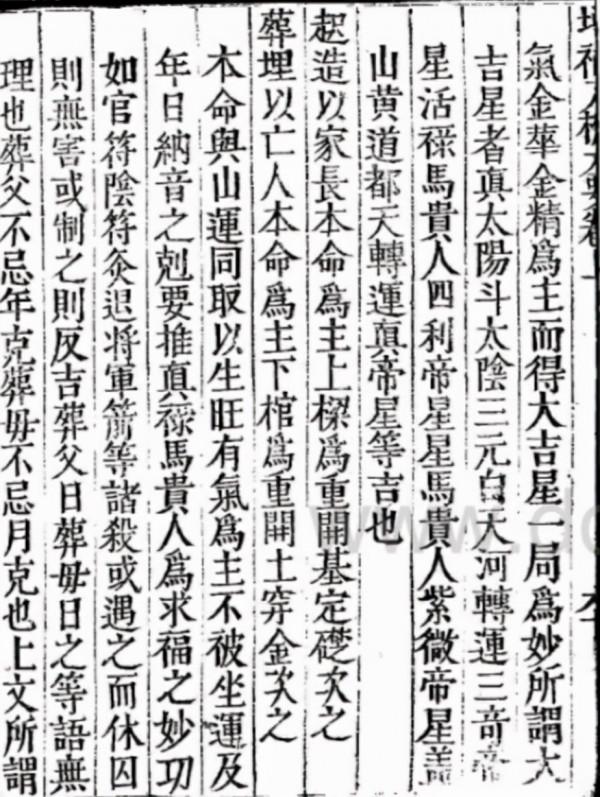 氣金華金精爲主而得大吉星一局爲妙所謂大
吉星者眞太陽斗太陰三元白天河轉運三奇帝
星活祿馬貴人四利帝星星馬貴人紫微帝星蓋
山黄道都天轉運眞帝星等吉也
起造以家長本命爲主上樑爲重開基定磉次之
葬埋以亡人本命爲主下棺爲重開土穿金次之
本命與山運同取以生旺有氣爲主不被坐運及
年日納音之剋要推眞祿馬貴人爲求福之妙功
如官符陰符灸退將軍箭等諸殺或遇之而休囚
則無害或制之則反吉葬父日葬母日之等語無
理也葬父不忌年克葬毋不忌月克也上文所謂